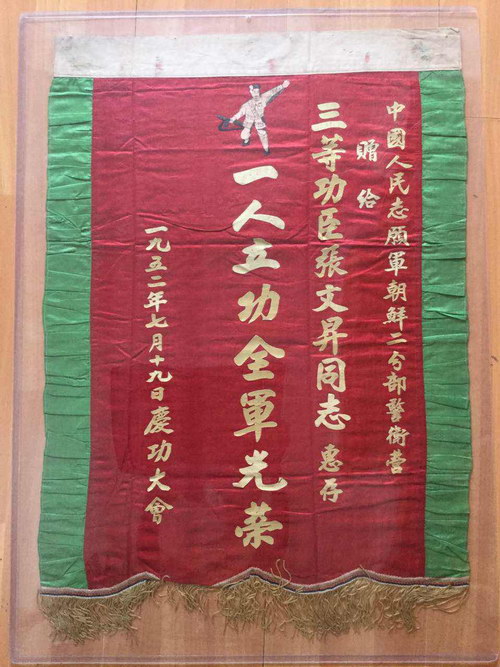 中國人民志願軍朝鮮二分部警衛营
贈给
三等功臣張文昇同志惠存
一人立功全軍光荣
一九五二年七月十九日慶功大會